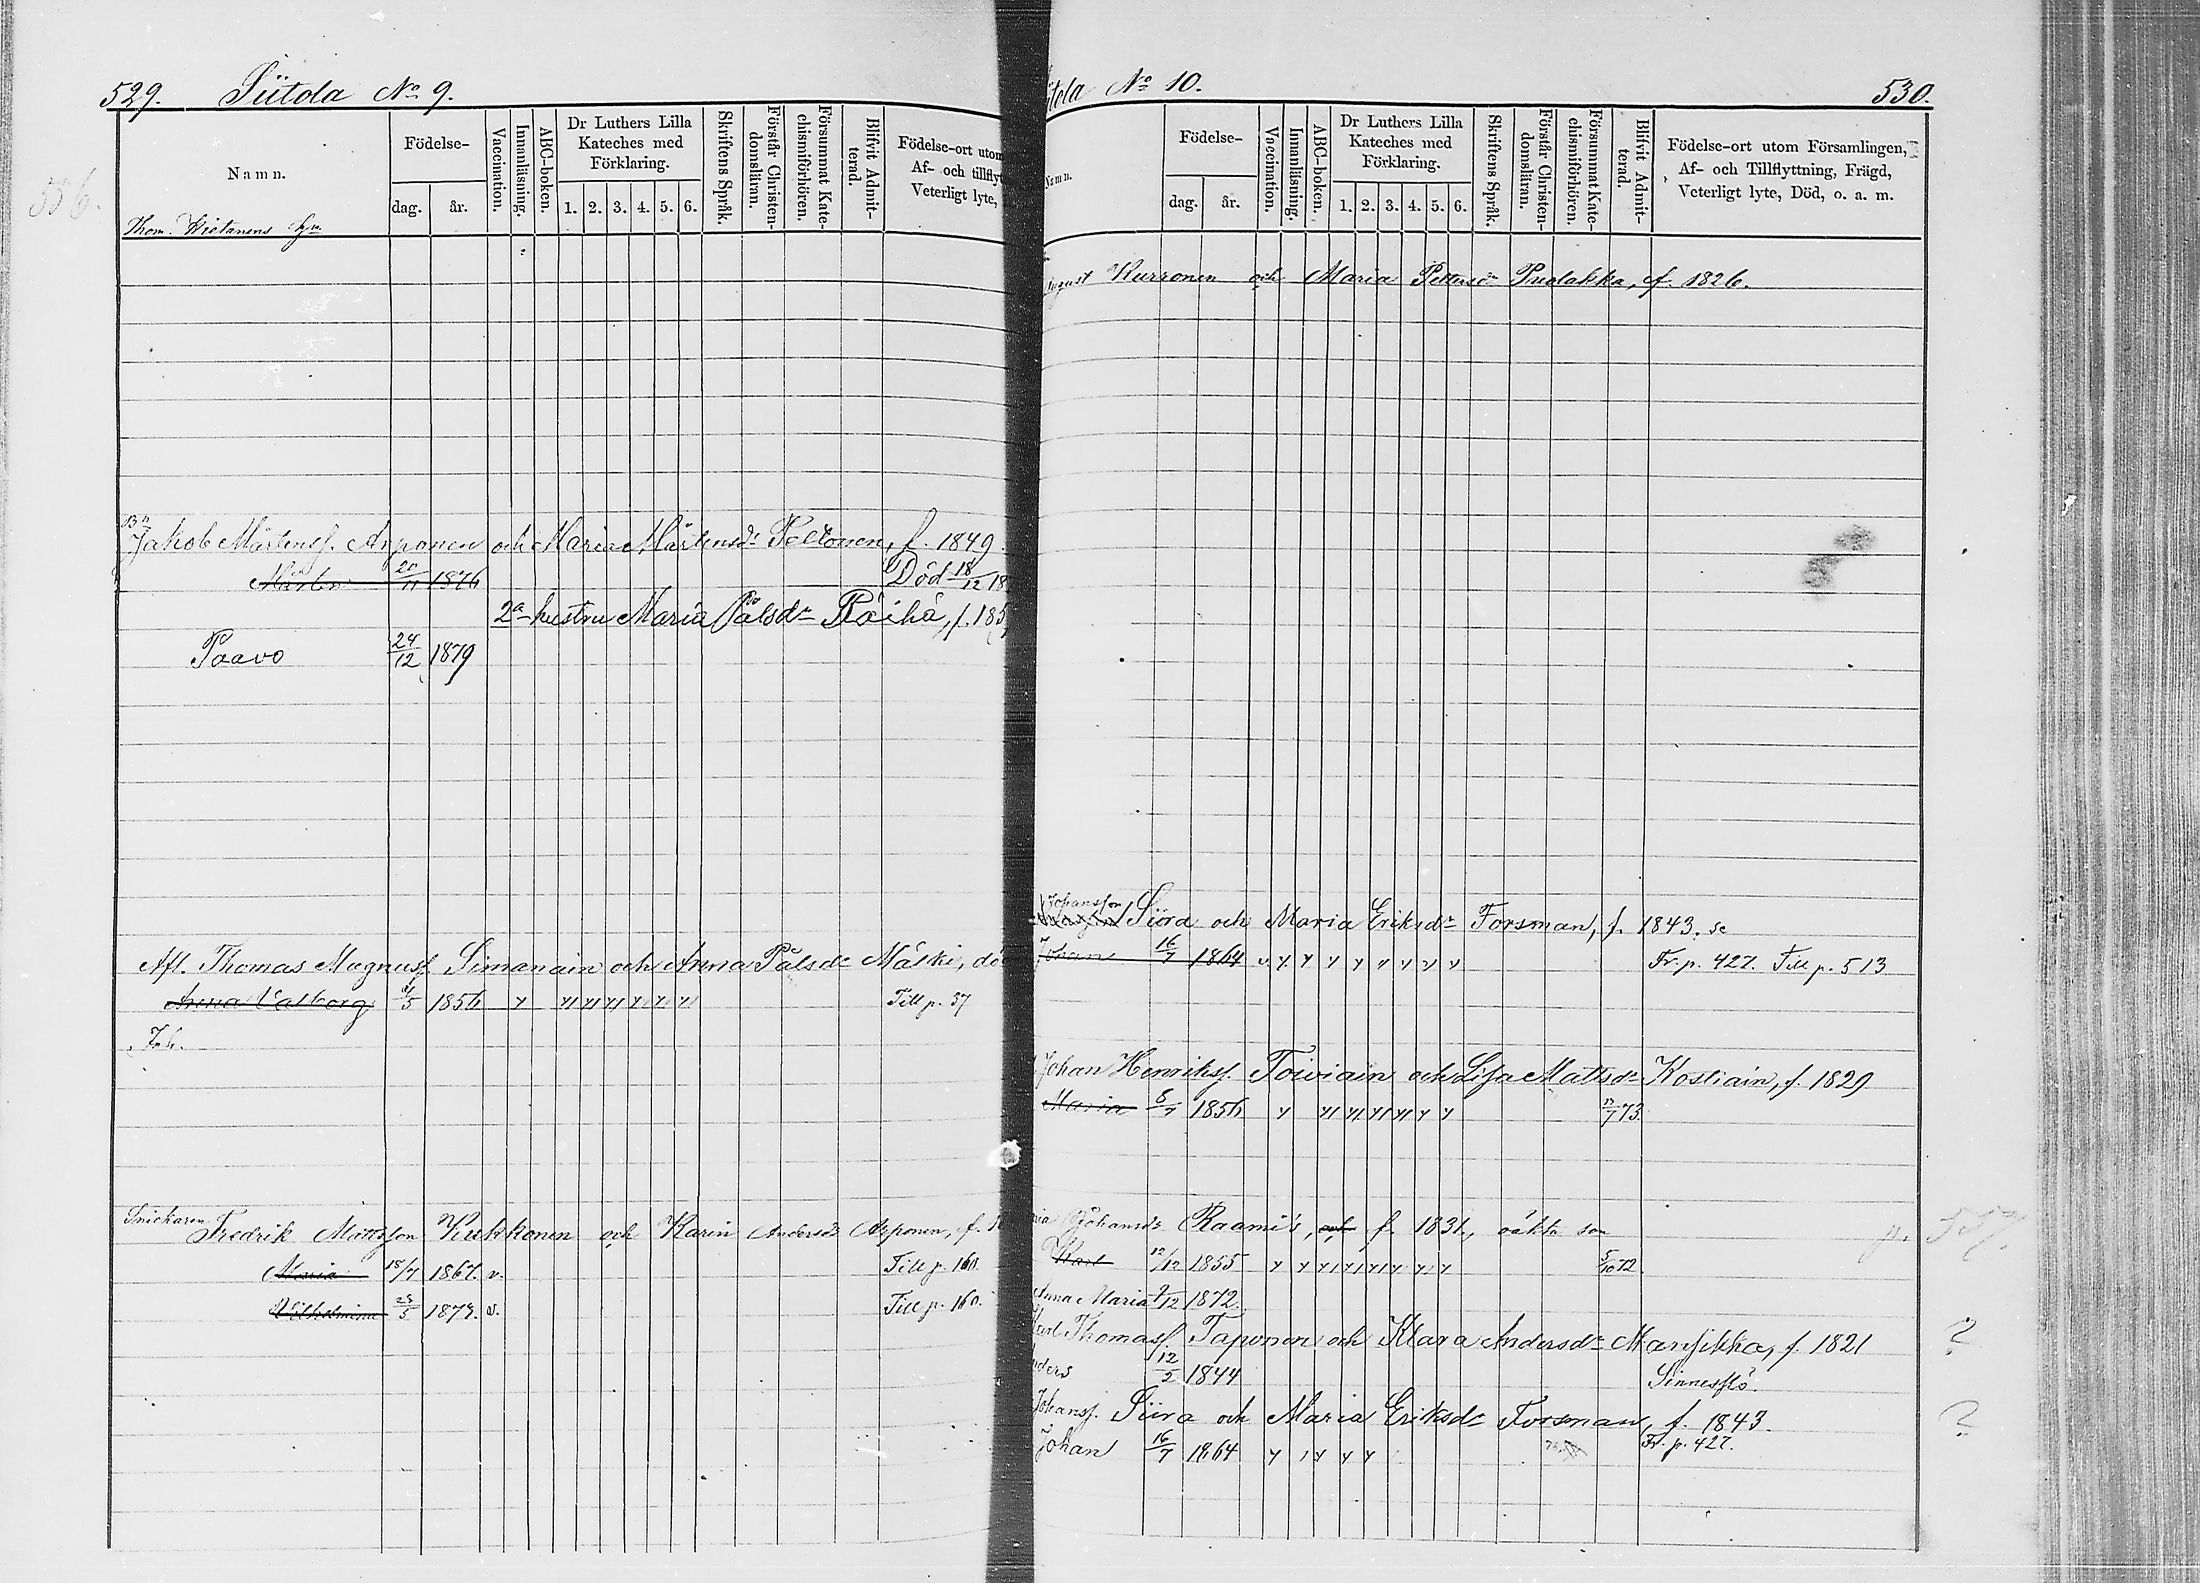 529. Siitola No 9.
536.
Namn.
Födelse-
dag.
år.
Vaccination.
Innanläsning.
ABC-boken.
Dr Luthers Lilla
Kateches med
Förklaring.
1. 2. 3. 4. 5. 6.
Skriftens Språk.
Förstår Christen-
domsläran.
Försummat Kate-
chismiförhören.
Blifvit Admit-
terad.
Födelse-ort utom
Af- och tillfly
Veterligt lyte,
Thom.
Jakob Mårtensf. Arponen och Maria Mårtensdr Peltonen, f. 1849.
Mårten 20/11 1876 Död 18/12 18
2a hustru Maria Pålsdr Räihä, f. 185
Paavo 24/12 1879
Afl. Thomas Magnusf. Simanain och Anna Pålsdr Mälki, dö
Anna Valborg 1856 Till p. 37
Snickaren Fredrik Mattsson Kukkonen och Karin Andersdr Arponen, f. 
Maria 18/7 1867. v. Till p. 160.
Vilhelmina 1879. v. Till p. 160.
itola No 10. 530.
Namn.
Födelse-
dag.
år.
Vaccination.
Innanläsning.
ABC-boken.
Dr Luthers Lilla
Kateches med
Förklaring.
1. 2. 3. 4. 5. 6.
Skriftens Språk.
Förstår Christen-
domsläran.
Försummat Kate-
chismiförhören.
Blifvit Admit-
terad.
Födelse-ort utom Församlingen,
Af- och Tillflyttning, Frägd,
Veterligt lyte, Död, o. a. m.
August Kurronen och Maria Pettersdr Puolakka, f. 1826.
Johansson
Siira och Maria Eriksdr Forsman, f. 1843. se
Johan 16/7 1864 v y y y y y y y y Fr. p. 427. Till p. 513
Johan Henriksf. Toiviain och Lisa Mattsdr Kostiain, f. 1829
Maria 8/7 1856 73.
Johansdr Raami's, och f. 1831, oäkta son
p. 537.
Karl 12/12 1855 5/10 72
Anna Maria 9/12 1872.
Karl Thomasf. Taponen och Klara Andersdr Mansikka, f. 1821
?
ders 12/2 1844 Sinnesslö.
Johansf. Siira och Maria Eriksdr Forsman, f. 1843.
?
Johan 16/7 1864 Fr. p. 427.